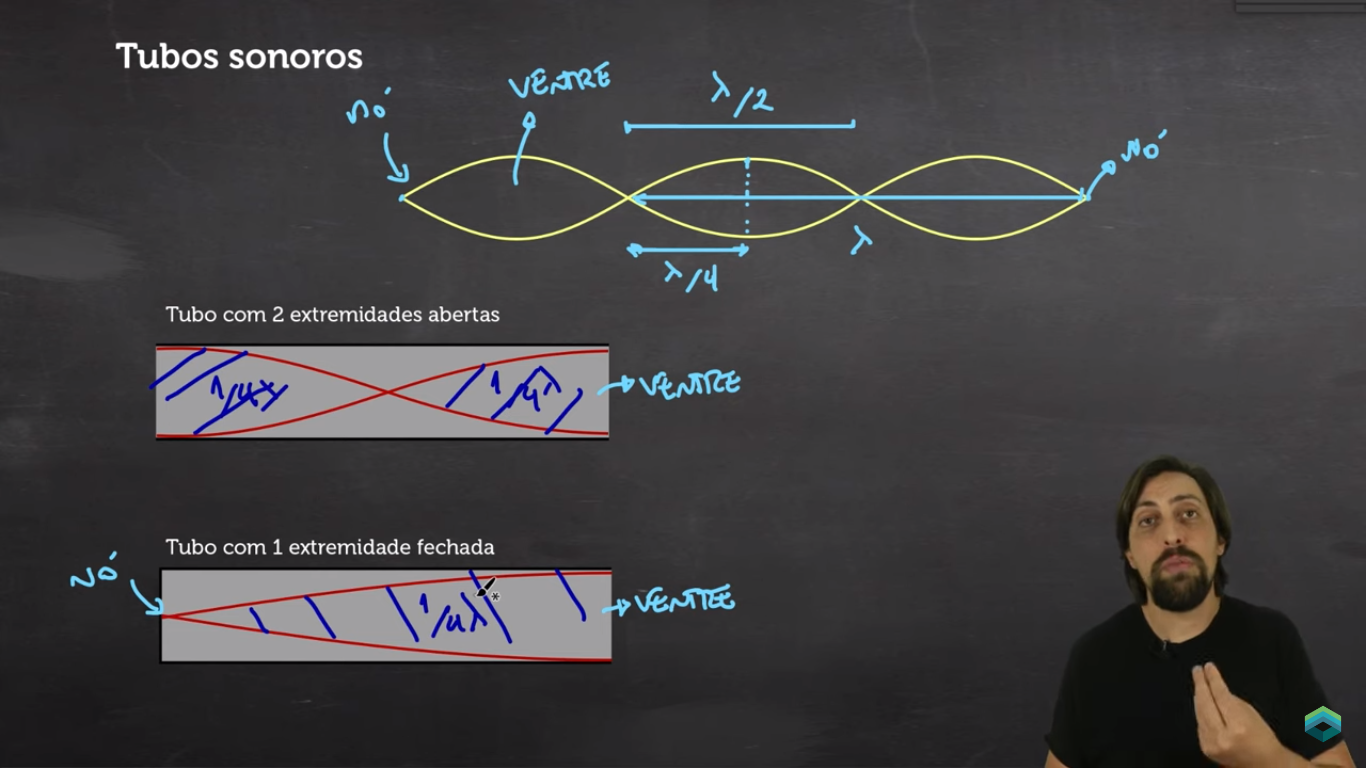 Tubos sonoros
NÓ
VENTRE
λ/2
NÓ
λ
λ/4
Tubo com 2 extremidades abertas
1/4λ
1/4λ
VENTRE
Tubo com 1 extremidade fechada
NÓ
1/4λ
VENTRE